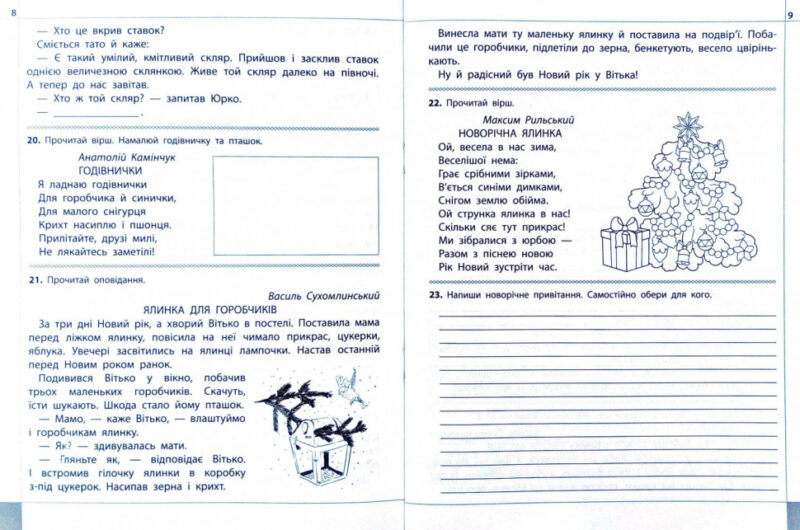 8
— Хто це вкрив ставок?
Сміється тато й каже:
— Є такий умілий, кмітливий скляр. Прийшов і засклив ставок
однією величезною склянкою. Живе той скляр далеко на півночі.
А тепер до нас завітав.
— Хто ж той скляр? — запитав Юрко.
— _______________.
20. Прочитай вірш. Намалюй годівничку та пташок.
Анатолій Камінчук
ГОДІВНИЧКИ
Я ладнаю годівнички
Для горобчика й синички,
Для малого снігурця
Крихт насиплю і пшонця.
Прилітайте, друзі милі,
Не лякайтесь заметілі!
21. Прочитай оповідання.
Василь Сухомлинський
ЯЛИНКА ДЛЯ ГОРОБЧИКІВ
За три дні Новий рік, а хворий Вітько в постелі. Поставила мама
перед ліжком ялинку, повісила на неї чимало прикрас, цукерки,
яблука. Увечері засвітились на ялинці лампочки. Настав останній
перед Новим роком ранок.
Подивився Вітько у вікно, побачив
трьох маленьких горобчиків. Скачуть,
їсти шукають. Шкода стало йому пташок.
— Мамо, — каже Вітько, — влаштуймо
і горобчикам ялинку.
— Як? — здивувалась мати.
— Гляньте як, — відповідає Вітько.
І встромив гілочку ялинки в коробку
з-під цукерок. Насипав зерна і крихт.
9
Винесла мати ту маленьку ялинку й поставила на подвір’ї. Поба-
чили це горобчики, підлетіли до зерна, бенкетують, весело цвірінь-
кають.
Ну й радісний був Новий рік у Вітька!
22. Прочитай вірш.
Максим Рильський
НОВОРІЧНА ЯЛИНКА
Ой, весела в нас зима,
Веселішої нема:
Грає срібними зірками,
В’ється синіми димками,
Снігом землю обійма.
Ой струнка ялинка в нас!
Скільки сяє тут прикрас!
Ми зібралися з юрбою —
Разом з піснею новою
Рік Новий зустріти час.
23. Напиши новорічне привітання. Самостійно обери для кого.